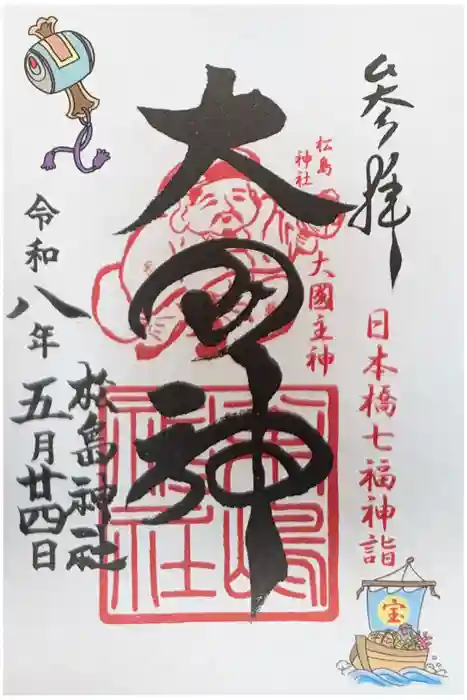 参拝
日本橋七福神詣
宝
松島
神社
大國主神
大国神
松嶋
神社
松島神社
令和八年五月廿四日